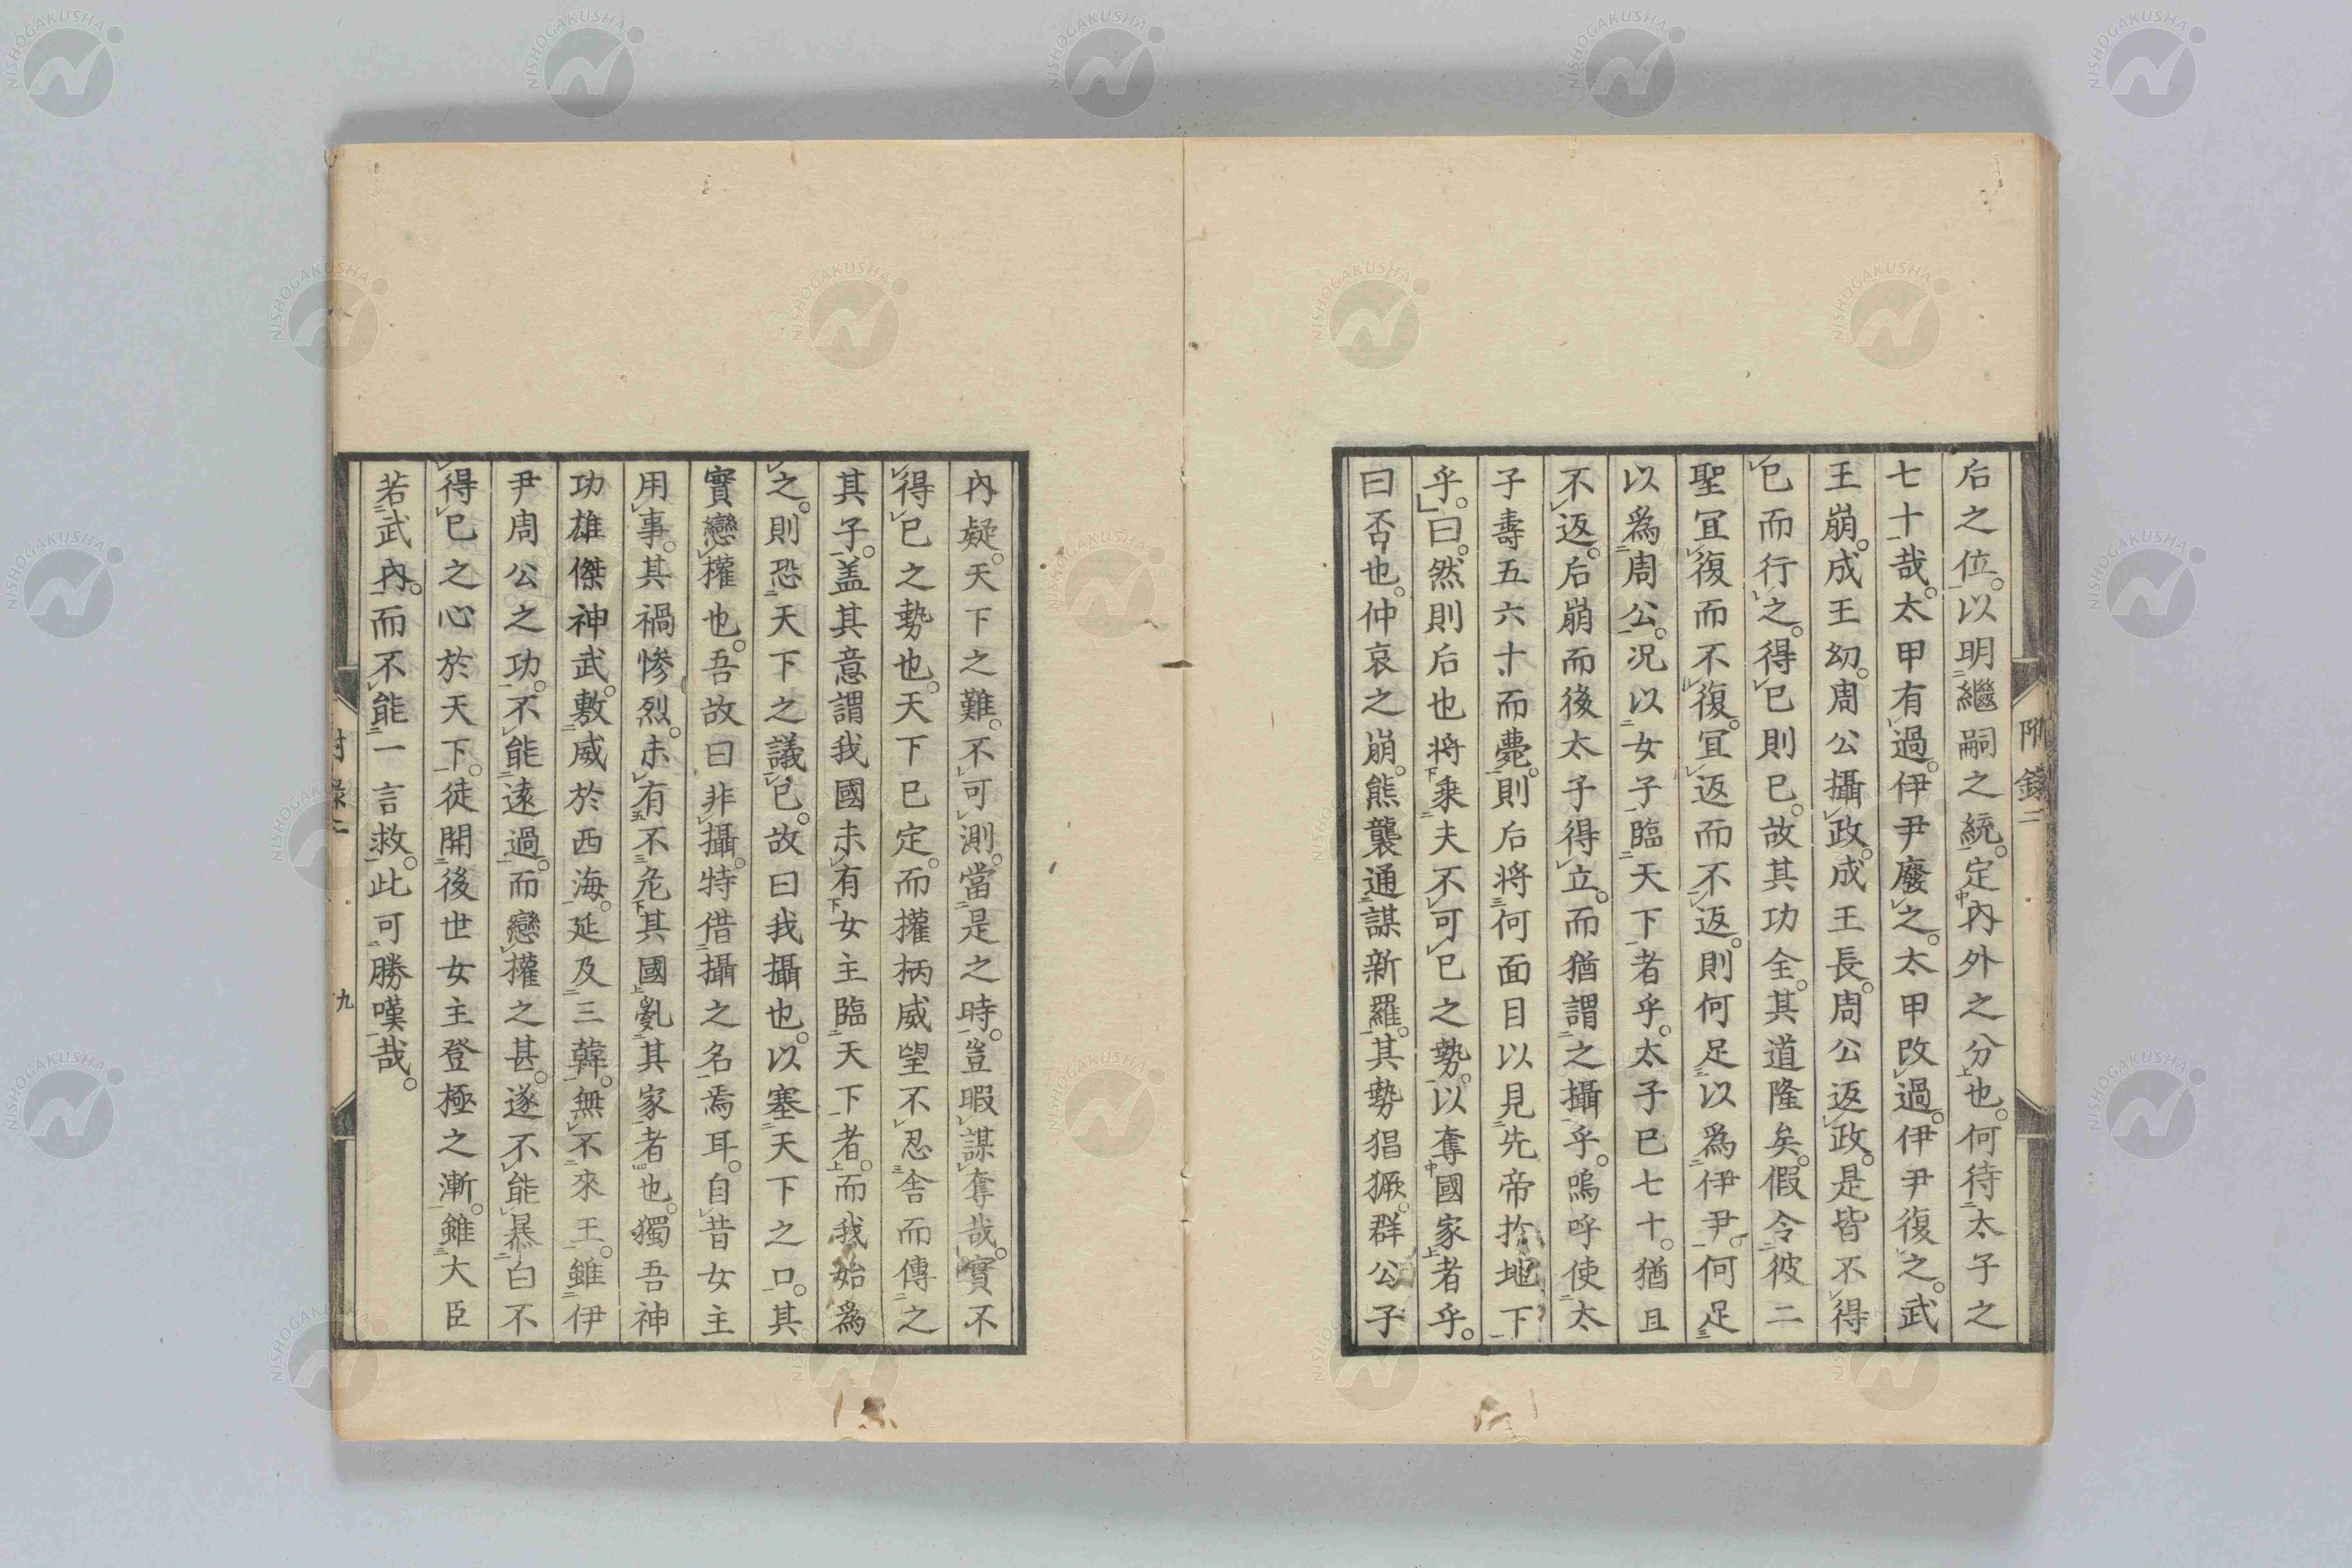 附錄二
后之位。以明繼嗣之統。定內外之分也。何待太子之
七十哉。太甲有過。伊尹廢之。太甲改過。伊尹復之。武
王崩。成王幼。周公攝政。成王長。周公返政。是皆不得
已而行之。得已則已。故其功全。其道隆矣。假令彼二
聖冝復而不復。冝返而不返。則何足以爲伊尹。何足
以爲周公。况以女子臨天下者乎。太子已七十。猶且
不返。后崩而後太子得立。而猶謂之攝乎。嗚呼使太
子壽五六十而薨。則后将何面目以見先帝於地下
乎。曰。然則后也将乗夫不可已之勢。以奪國家者乎。
曰否也。仲哀之崩。熊襲通謀新羅。其勢猖獗。群公子
內疑。天下之難。不可測。當是之時。豈暇謀奪哉。實不
得已之勢也。天下已定。而權柄威望不忍舍而傳之
其子。盖其意謂我國未有女主臨天下者。而我始爲
之。則恐天下之議已。故曰我攝也。以塞天下之口。其
實戀權也。吾故曰非攝。特借攝之名焉耳。自昔女主
用事。其禍慘烈。未有不危其國亂其家者也。獨吾神
功雄傑神武。敷威於西海。延及三韓。無不來王。雖伊
尹周公之功。不能遠過。而戀權之甚。遂不能暴白不
得已之心於天下。徒開後世女主登極之漸。雖大臣
若武內。而不能一言救。此可勝嘆哉。
九
NISHOGAKUSHA